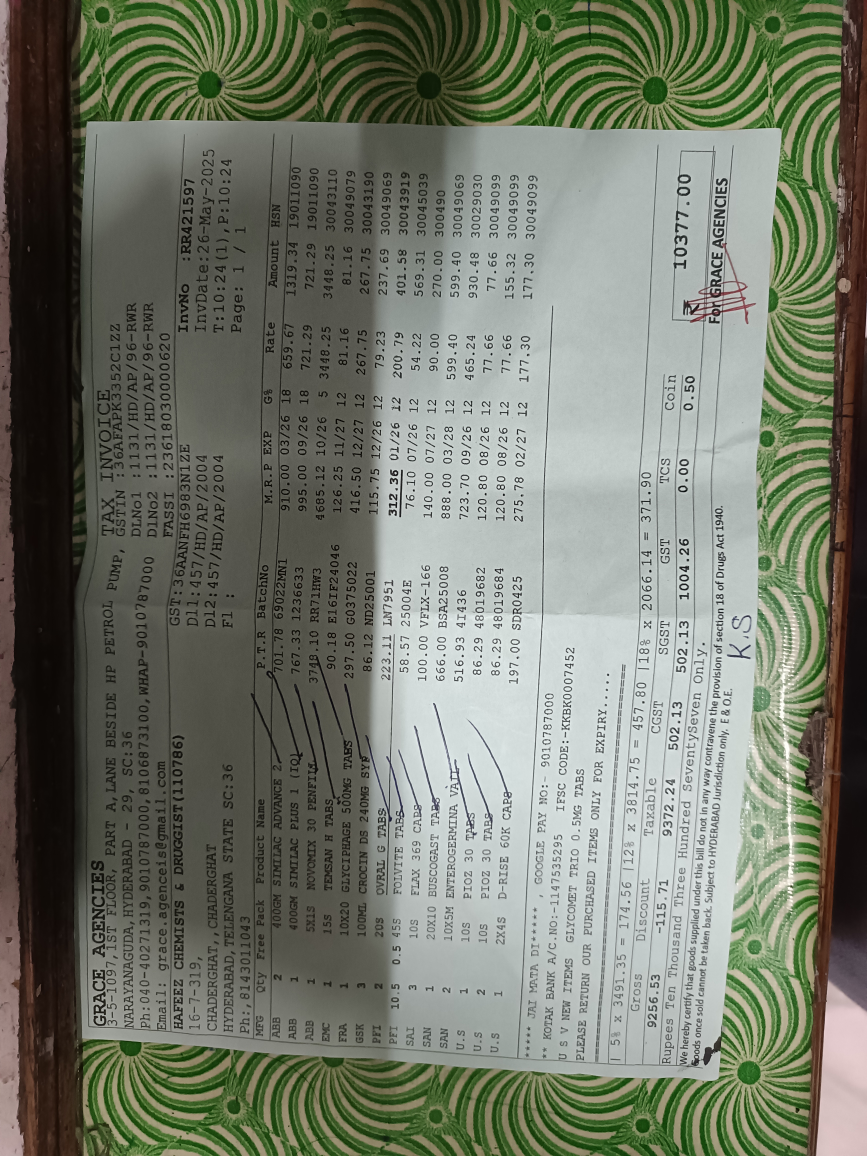 GRACE AGENCIES
3-5-1097,1ST FLOOR, PART A,LANE BESIDE HP PETROL PUMP,
NARAYANAGUDA,HYDERABAD - 29, SC:36
Ph:040-40271319,9010787000,8106873100,WHAP-9010787000
Email: grace.agenceis@gmail.com
TAX INVOICE
GSTIN :36AFAPK3352C1ZZ
DLNo1 :1131/HD/AP/96-RWR
DlNo2 :1131/HD/AP/96-RWR
FASSI :23618030000620
HAFEEZ CHEMISTS & DRUGGIST(110786)
16-7-319,
CHADERGHAT,,CHADERGHAT
HYDERABAD,TELENGANA STATE SC:36
Ph:,8143011043
GST:36AANFH6983N1ZE
Dl1:457/HD/AP/2004
Dl2:457/HD/AP/2004
Fl :
InvNo :RR421597
InvDate:26-May-2025
T:10:24(1),P:10:24
Page: 1 / 1
MFG Qty Free Pack Product Name P.T.R BatchNo M.R.P EXP G% Rate Amount HSN
ABB 2 400GM SIMILAC ADVANCE 2 701.78 69022MN1 910.00 03/26 18 659.67 1319.34 19011090
ABB 1 400GM SIMILAC PLUS 1 (IQ) 767.33 1236633 995.00 09/26 18 721.29 721.29 19011090
ABB 1 5X1S NOVOMIX 30 PENFILL 3748.10 RR71HW3 4685.12 10/26 5 3448.25 3448.25 30043110
EMC 1 15S TEMSAN H TABS 90.18 E16IF24046 126.25 11/27 12 81.16 81.16 30049079
FRA 1 10X20 GLYCIPHAGE 500MG TABS 297.50 G0375022 416.50 12/27 12 267.75 267.75 30043190
GSK 3 100ML CROCIN DS 240MG SYP 86.12 ND25001 115.75 12/26 12 79.23 237.69 30049069
PFI 2 20S OVRAL G TABS 223.11 LN7951 312.36 01/26 12 200.79 401.58 30043919
PFI 10.5 0.5 45S FOLVITE TABS 58.57 25004E 76.10 07/26 12 54.22 569.31 30045039
SAI 3 10S FLAX 369 CAPS 100.00 VFLX-166 140.00 07/27 12 90.00 270.00 300490
SAN 1 20X10 BUSCOGAST TABS 666.00 BSA25008 888.00 03/28 12 599.40 599.40 30049069
SAN 2 10X5M ENTEROGERMINA VAIL 516.93 4I436 723.70 09/26 12 465.24 930.48 30029030
U.S 1 10S PIOZ 30 TABS 86.29 48019682 120.80 08/26 12 77.66 77.66 30049099
U.S 2 10S PIOZ 30 TABS 86.29 48019684 120.80 08/26 12 77.66 155.32 30049099
U.S 1 2X4S D-RISE 60K CAPS 197.00 SDR0425 275.78 02/27 12 177.30 177.30 30049099
***** JAI MATA DI***** , GOOGLE PAY NO:- 9010787000
** KOTAK BANK A/C.NO:-1147535295 IFSC CODE:-KKBK0007452
U S V NEW ITEMS GLYCOMET TRIO 0.5MG TABS
PLEASE RETURN OUR PURCHASED ITEMS ONLY FOR EXPIRY.....
| 5% x 3491.35 = 174.56 |12% x 3814.75 = 457.80 |18% x 2066.14 = 371.90
Gross Discount Taxable CGST SGST GST TCS Coin
9256.53 -115.71 9372.24 502.13 502.13 1004.26 0.00 0.50
₹ 10377.00
Rupees Ten Thousand Three Hundred SeventySeven Only.
We hereby certify that goods supplied under this bill do not in any way contravene the provision of section 18 of Drugs Act 1940.
Goods once sold cannot be taken back. Subject to HYDERABAD Jurisdiction only. E & O.E.
For GRACE AGENCIES
K.S